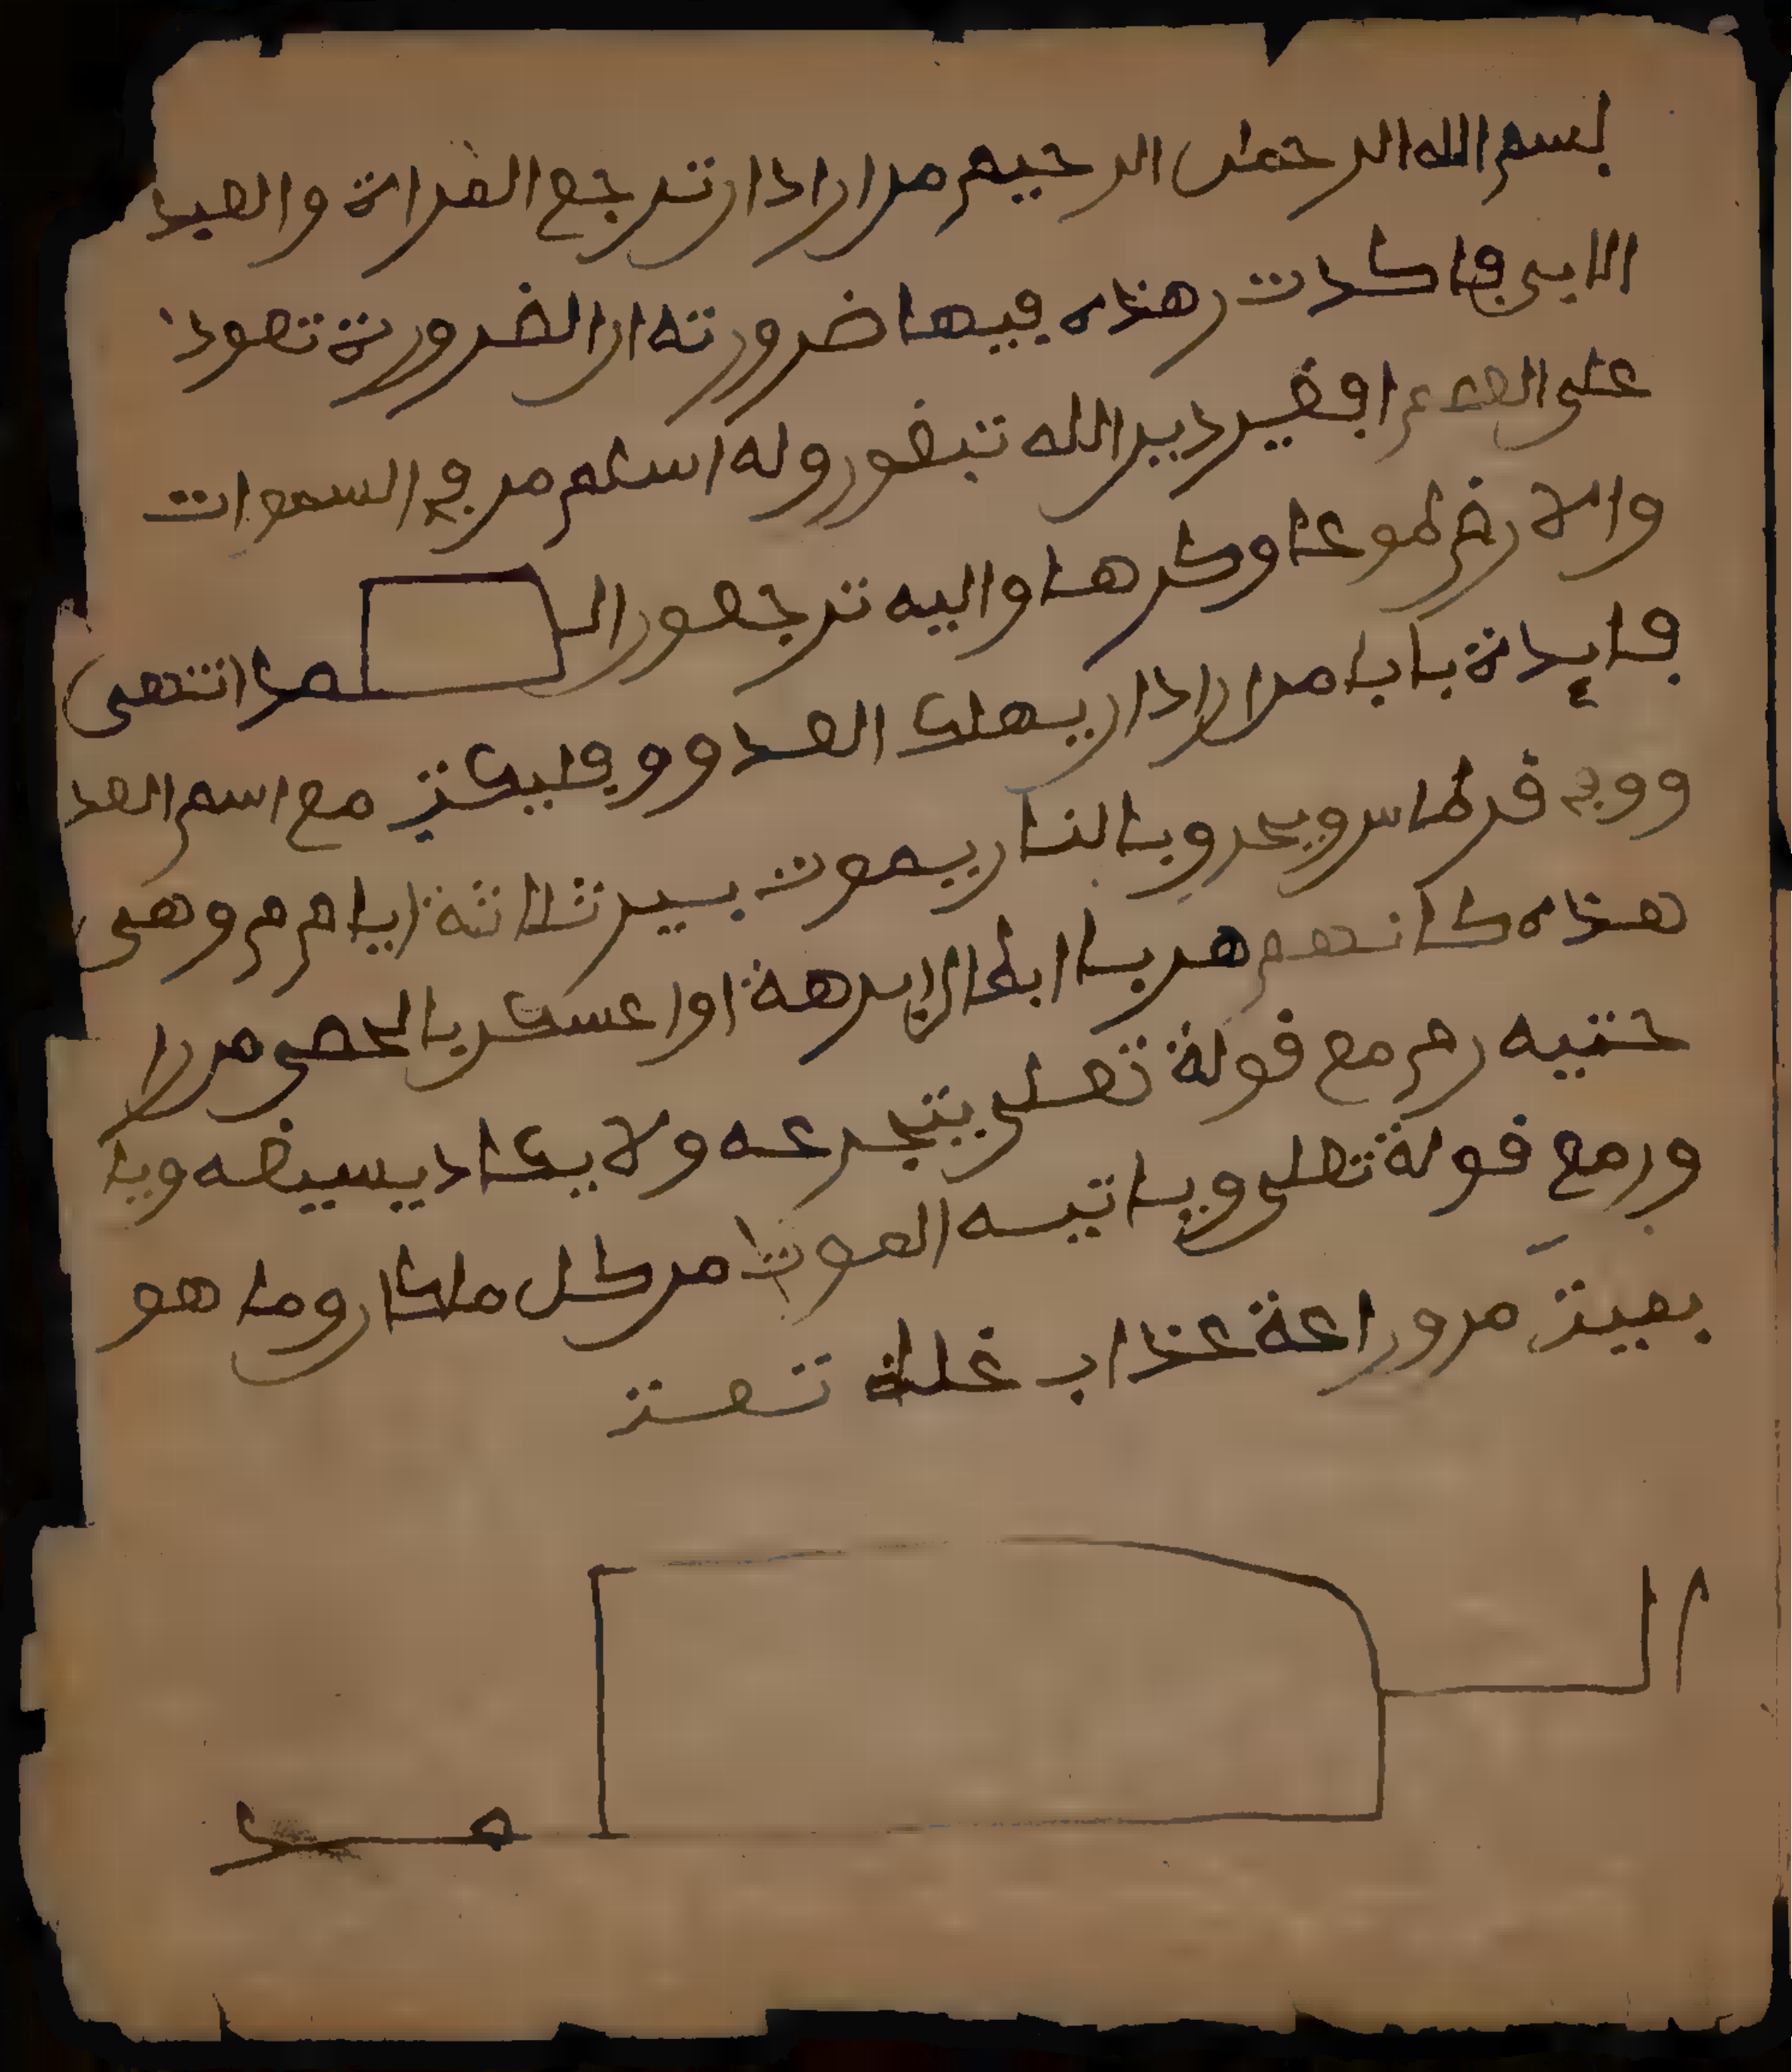 بسم الله الرحمن الرحيم من اراد ان ترجع المراة والعبد
الابى فاكدت هذه فيها ضرورته ان الضرورة تعود
على افغير دين الله تبغون وله اسلم من في السموات
والارض طوعا وكرها واليه ترجعون الـ صد انتهى
فايدة باب من اراد ان يهلك العدو و فليكتب مع اسم العد
و وفى قرطاس ويحروبالنار يموت بين ثلاثة ايام م م وهى
هذه كانهم هربا ابطال ابرهة اوا عسكر بالحصى من را
حتيه رم مع قولة تعلى يتجرعه ولا يكاد يسيغه ويا
ورمع قولة تعلى وياتيه الموت من كل مكان وما هو
بميت من وراءه عذاب غلة تمت
الـ صد